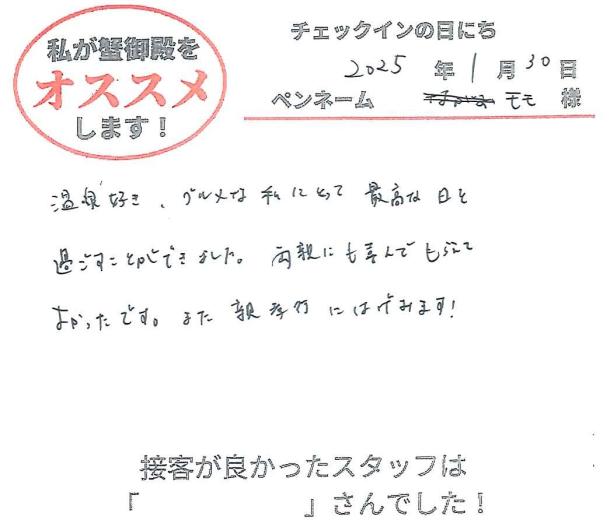 私が蟹御殿を
オススメ
します！
チェックインの日にち
2025 年 1 月 30 日
ペンネーム モモ 様
温泉好き、グルメな私にとって最高な日を
過ごすことができました。両親にも喜んでもらえて
よかったです。また親孝行にはげみます!
接客が良かったスタッフは
「 」さんでした！